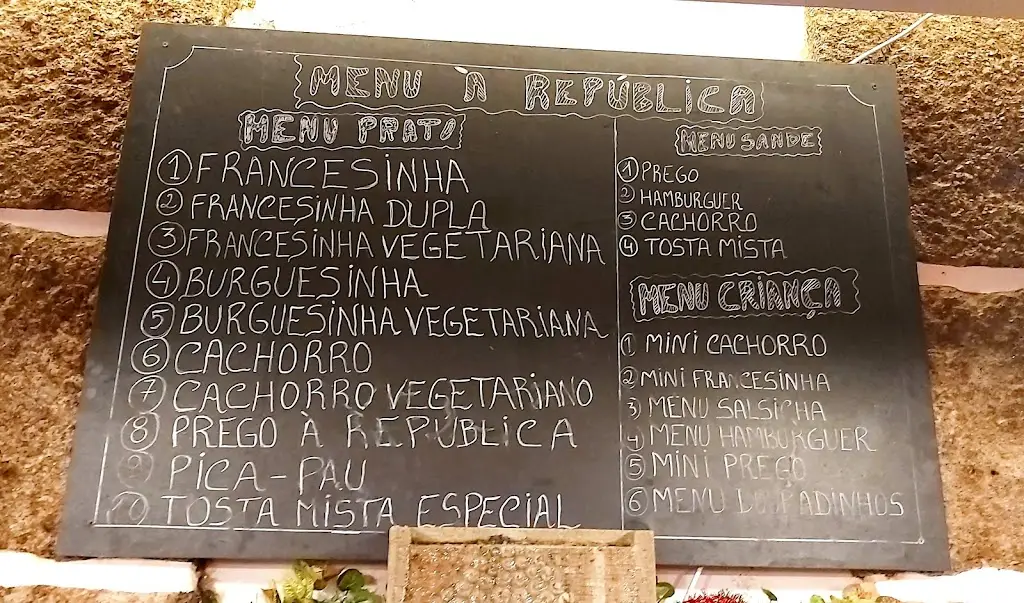 MENU À REPÚBLICA
MENU PRATO
1 FRANCESINHA
2 FRANCESINHA DUPLA
3 FRANCESINHA VEGETARIANA
4 BURGUESINHA
5 BURGUESINHA VEGETARIANA
6 CACHORRO
7 CACHORRO VEGETARIANO
8 PREGO À REPÚBLICA
9 PICA-PAU
10 TOSTA MISTA ESPECIAL
MENU SANDE
1 PREGO
2 HAMBURGUER
3 CACHORRO
4 TOSTA MISTA
MENU CRIANÇA
1 MINI CACHORRO
2 MINI FRANCESINHA
3 MENU SALSICHA
4 MENU HAMBURGUER
5 MINI PREGO
6 MENU